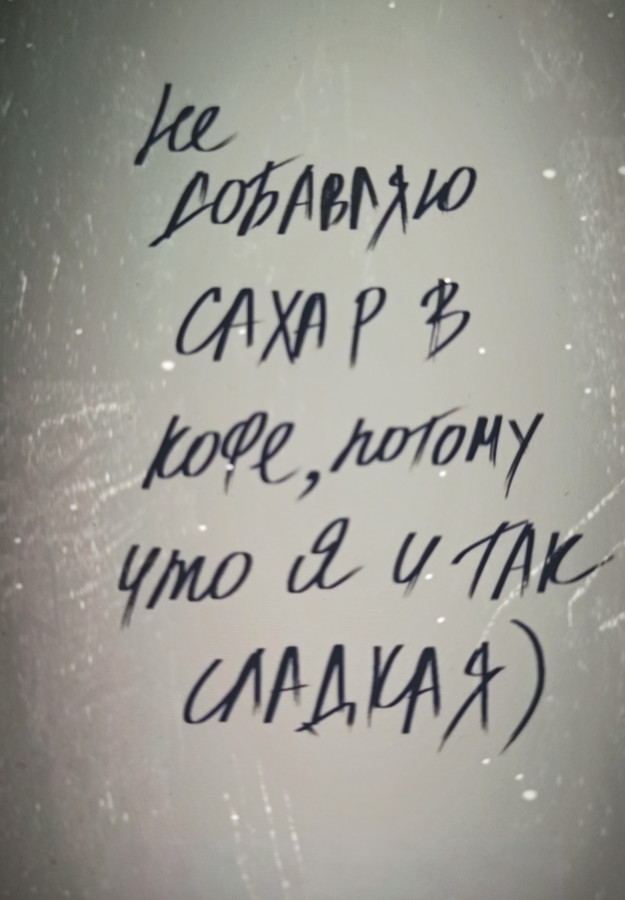 Не
ДОБАВЛЯЮ
САХАР В
кофе, потому
что Я и ТАК
СЛАДКАЯ)